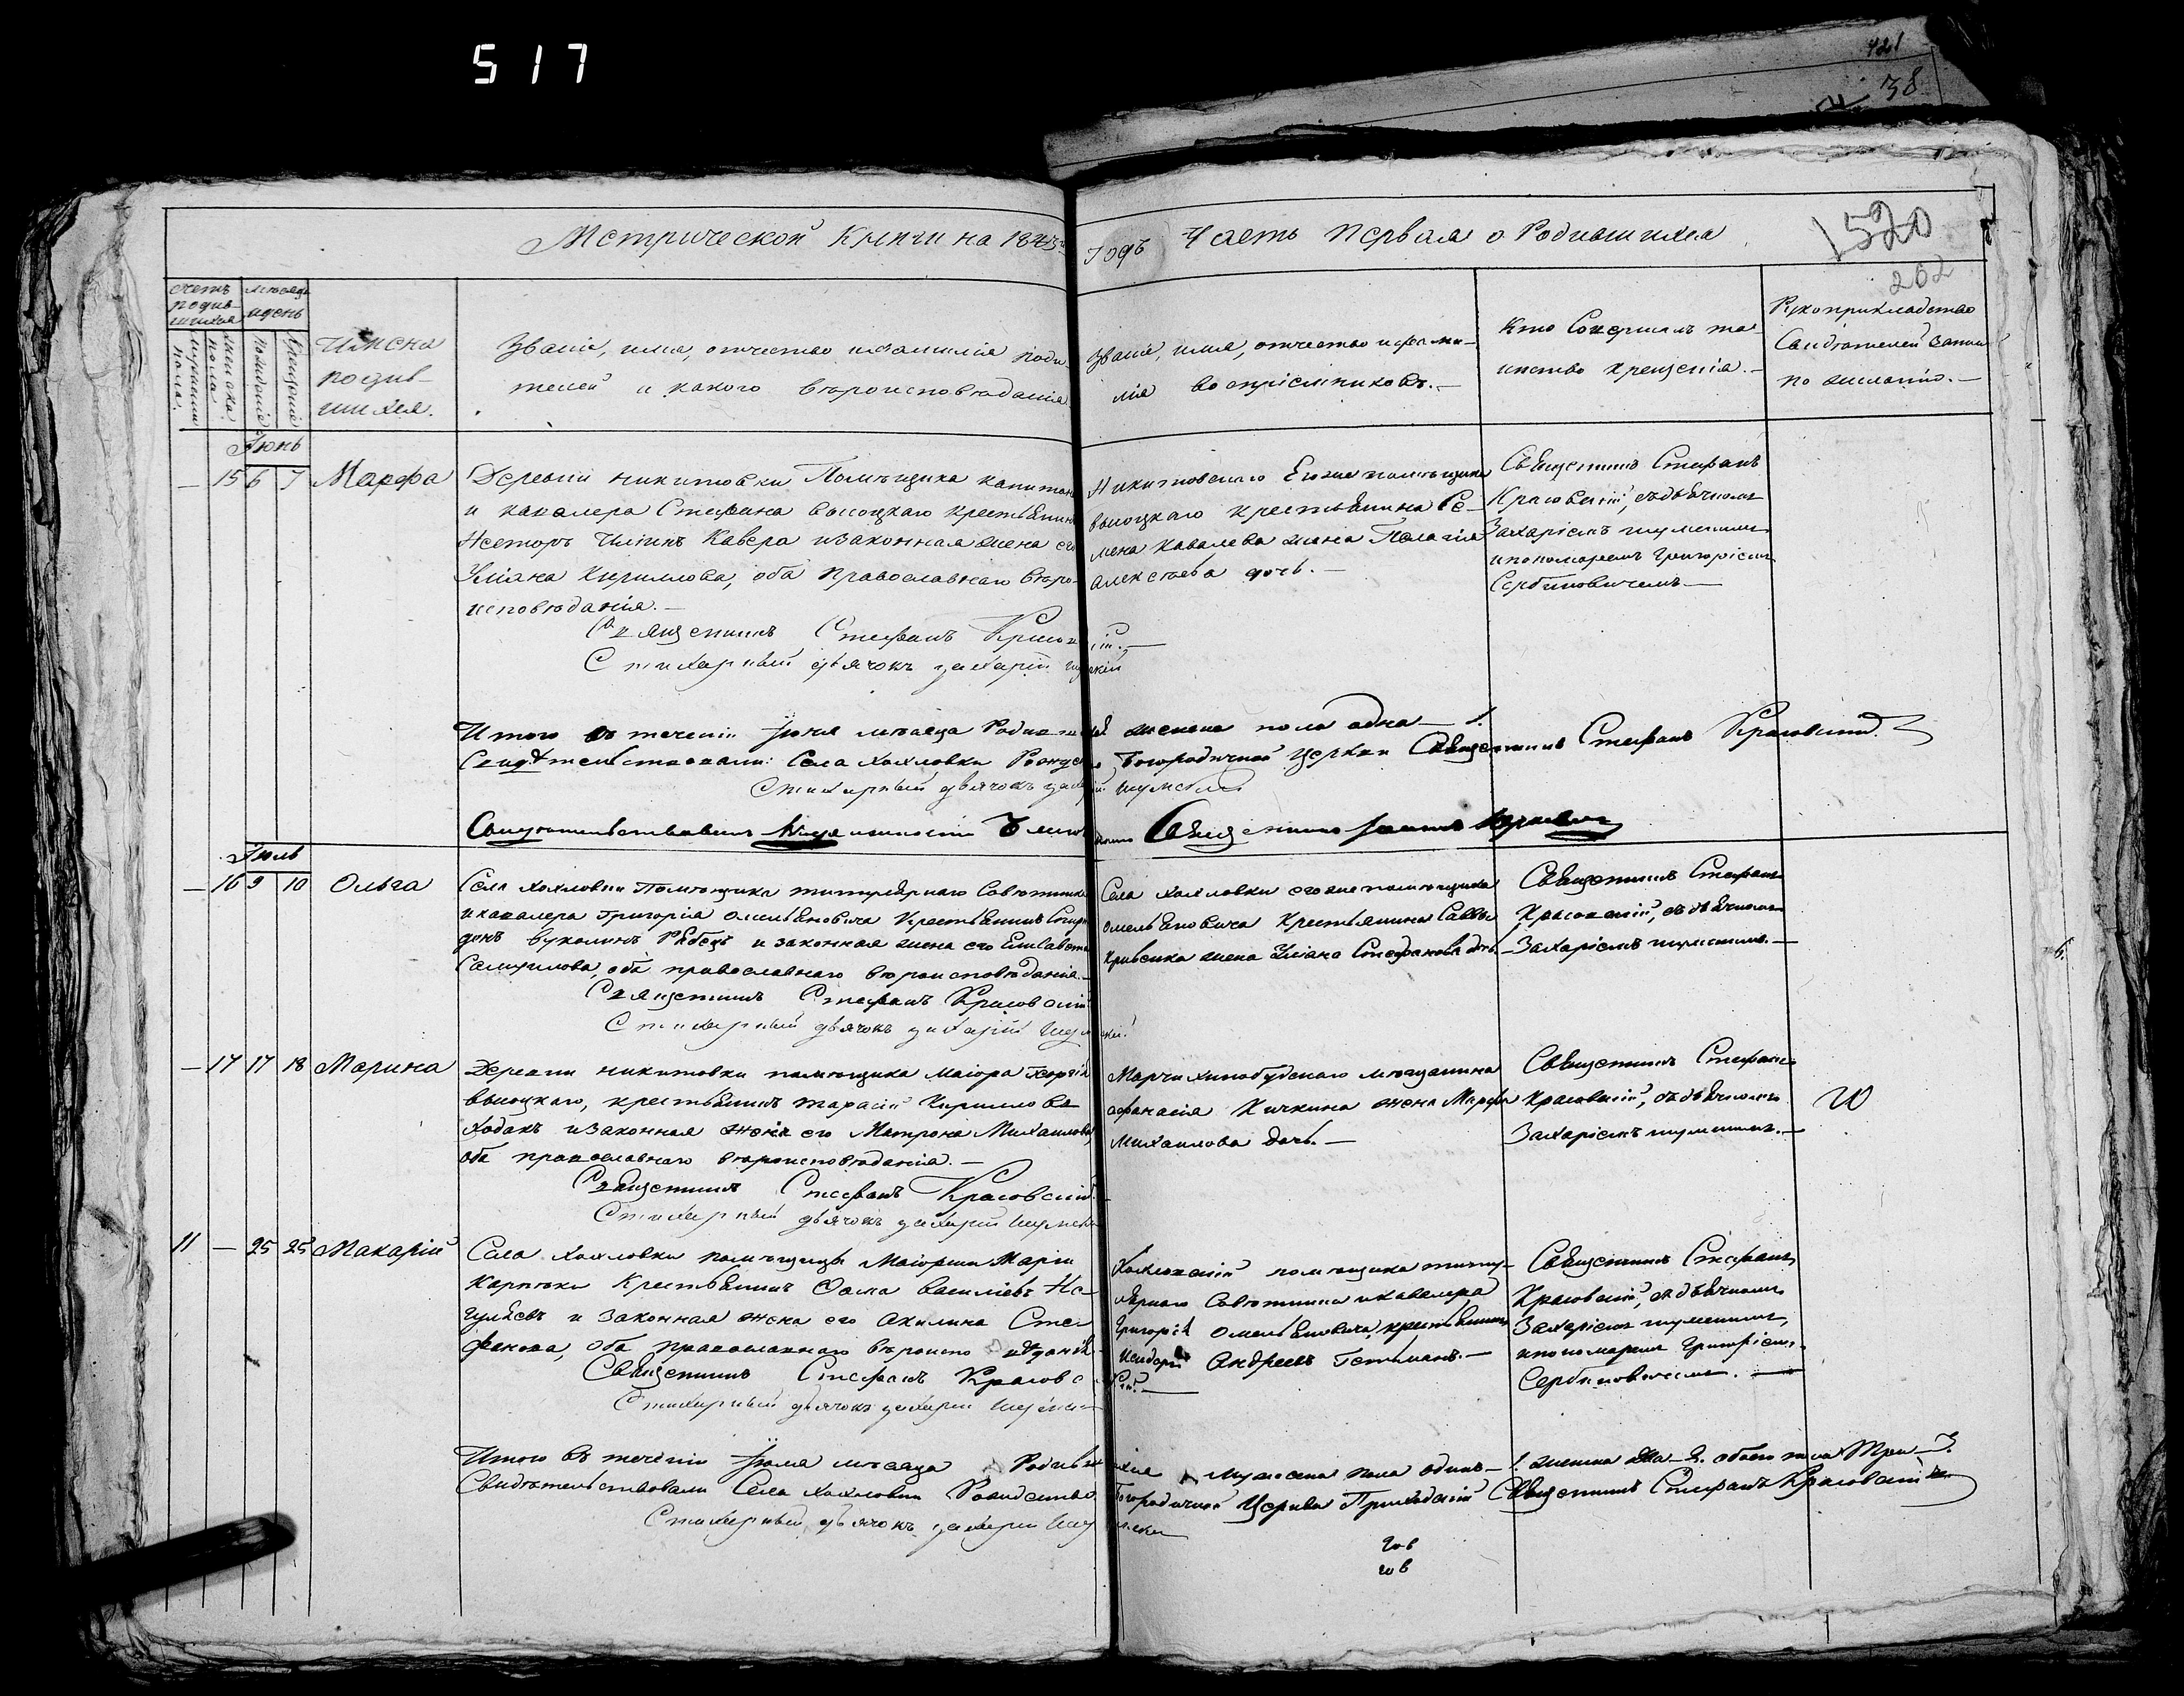 517
421
38
Метрической Книги на 1843
годъ Часть Первая о Родившихся
1520
262
счетъ родив-шихся
мѣсяцъ и день
мужеска пола.
женска пола.
Рожденія
Крещенія
Имена
родив-
шихся.
Званіе, имя, отчество и фамилія роди-
телей и какого вѣроисповѣданія.
Званіе, имя, отчество и фами-
лія воспріемниковъ.—
Кто Совершалъ та
инство крещенія.—
Рукоприкладство
Свидѣтелей записи
по желанію.—
Іюнь
— 15 6 7 Марфа
Деревни Никитовки Помѣщика капитана
и кавалера Стефана Высоцкаго крестьянинъ
Несторъ Иліинъ Кавера и законная жена его
Уліана Кириллова, оба Православнаго вѣро-
исповѣданія.—
Священникъ Стефанъ Красовскій.—
Стихарный дьячокъ Захарій Шумскій
Никитовскаго Егоже помѣщика
высоцкаго крестьянина Се-
мена Ковалева жена Пелагія
Алексѣева дочь.—
Священникъ Стефанъ
Красовскій, съ дьячкомъ
Захаріемъ шумскимъ
и пономаремъ Григоріемъ
Сербиновичемъ—
Итого въ теченіи Іюня мѣсяца Родившихся женска пола одна—1.
Свидѣтельствовали: Села Хохловки Рождество Богородичной Церкви Священникъ Стефанъ Красовскій.
Стихарный дьячокъ Захарій Шумскій
Священникъ
Іюль
— 16 9 10 Ольга
Села Хохловки Помѣщика титулярнаго Совѣтника
и кавалера Григорія Омельяновича Крестьянинъ
Рябецъ и законная жена его Елисавета
Самуилова, оба православнаго вѣроисповѣданія.—
Священникъ Стефанъ Красовскій
Стихарный дьячокъ Захарій Шумскій
Села Хохловки егоже помѣщика
Омельяновича Крестьянина Саввы
жена Уліана Стефанова дочь.—
Священникъ Стефанъ
Красовскій, съ дьячкомъ
Захаріемъ шумскимъ.—
— 17 17 18 Марина
Деревни Никитовки помѣщика Маіора Георгія
высоцкаго, крестьянинъ Тарасій Кирилловъ
Ходакъ и законная жена его Матрона Михаилова,
оба православнаго вѣроисповѣданія.—
Священникъ Стефанъ Красовскій.
Стихарный дьячокъ Захарій Шумскій
мѣщанина
Афанасія Кичкина жена Марфа
Михаилова дочь.—
Священникъ Стефанъ
Красовскій, съ дьячкомъ
Захаріемъ шумскимъ.—
11 — 25 25 Макарій
Села Хохловки помѣщицы Маіорши Маріи
Карпеки Крестьянинъ Фома Василіевъ Не-
гуляевъ и законная жена его Акилина Сте-
фанова, оба православнаго вѣроисповѣданія.
Священникъ Стефанъ Красовскій.—
Стихарный дьячокъ Захарій Шумскій
Хохловскій помѣщика титу-
лярнаго Совѣтника и кавалера
Григорія Омельяновича, крестьянинъ
Исидоръ Андреевъ Гетманъ.—
Священникъ Стефанъ
Красовскій, съ дьячкомъ
Захаріемъ шумскимъ,
и пономаремъ Григоріемъ
Сербиновичемъ.—
Итого въ теченіи Іюля мѣсяца Родившихся Мужеска пола одинъ—1. женска два—2. обоего пола Три—3.
Свидѣтельствовали Села Хохловки Рождество Богородичной Церкви Приходскій Священникъ Стефанъ Красовскій
Стихарный дьячокъ Захарій Шумскій